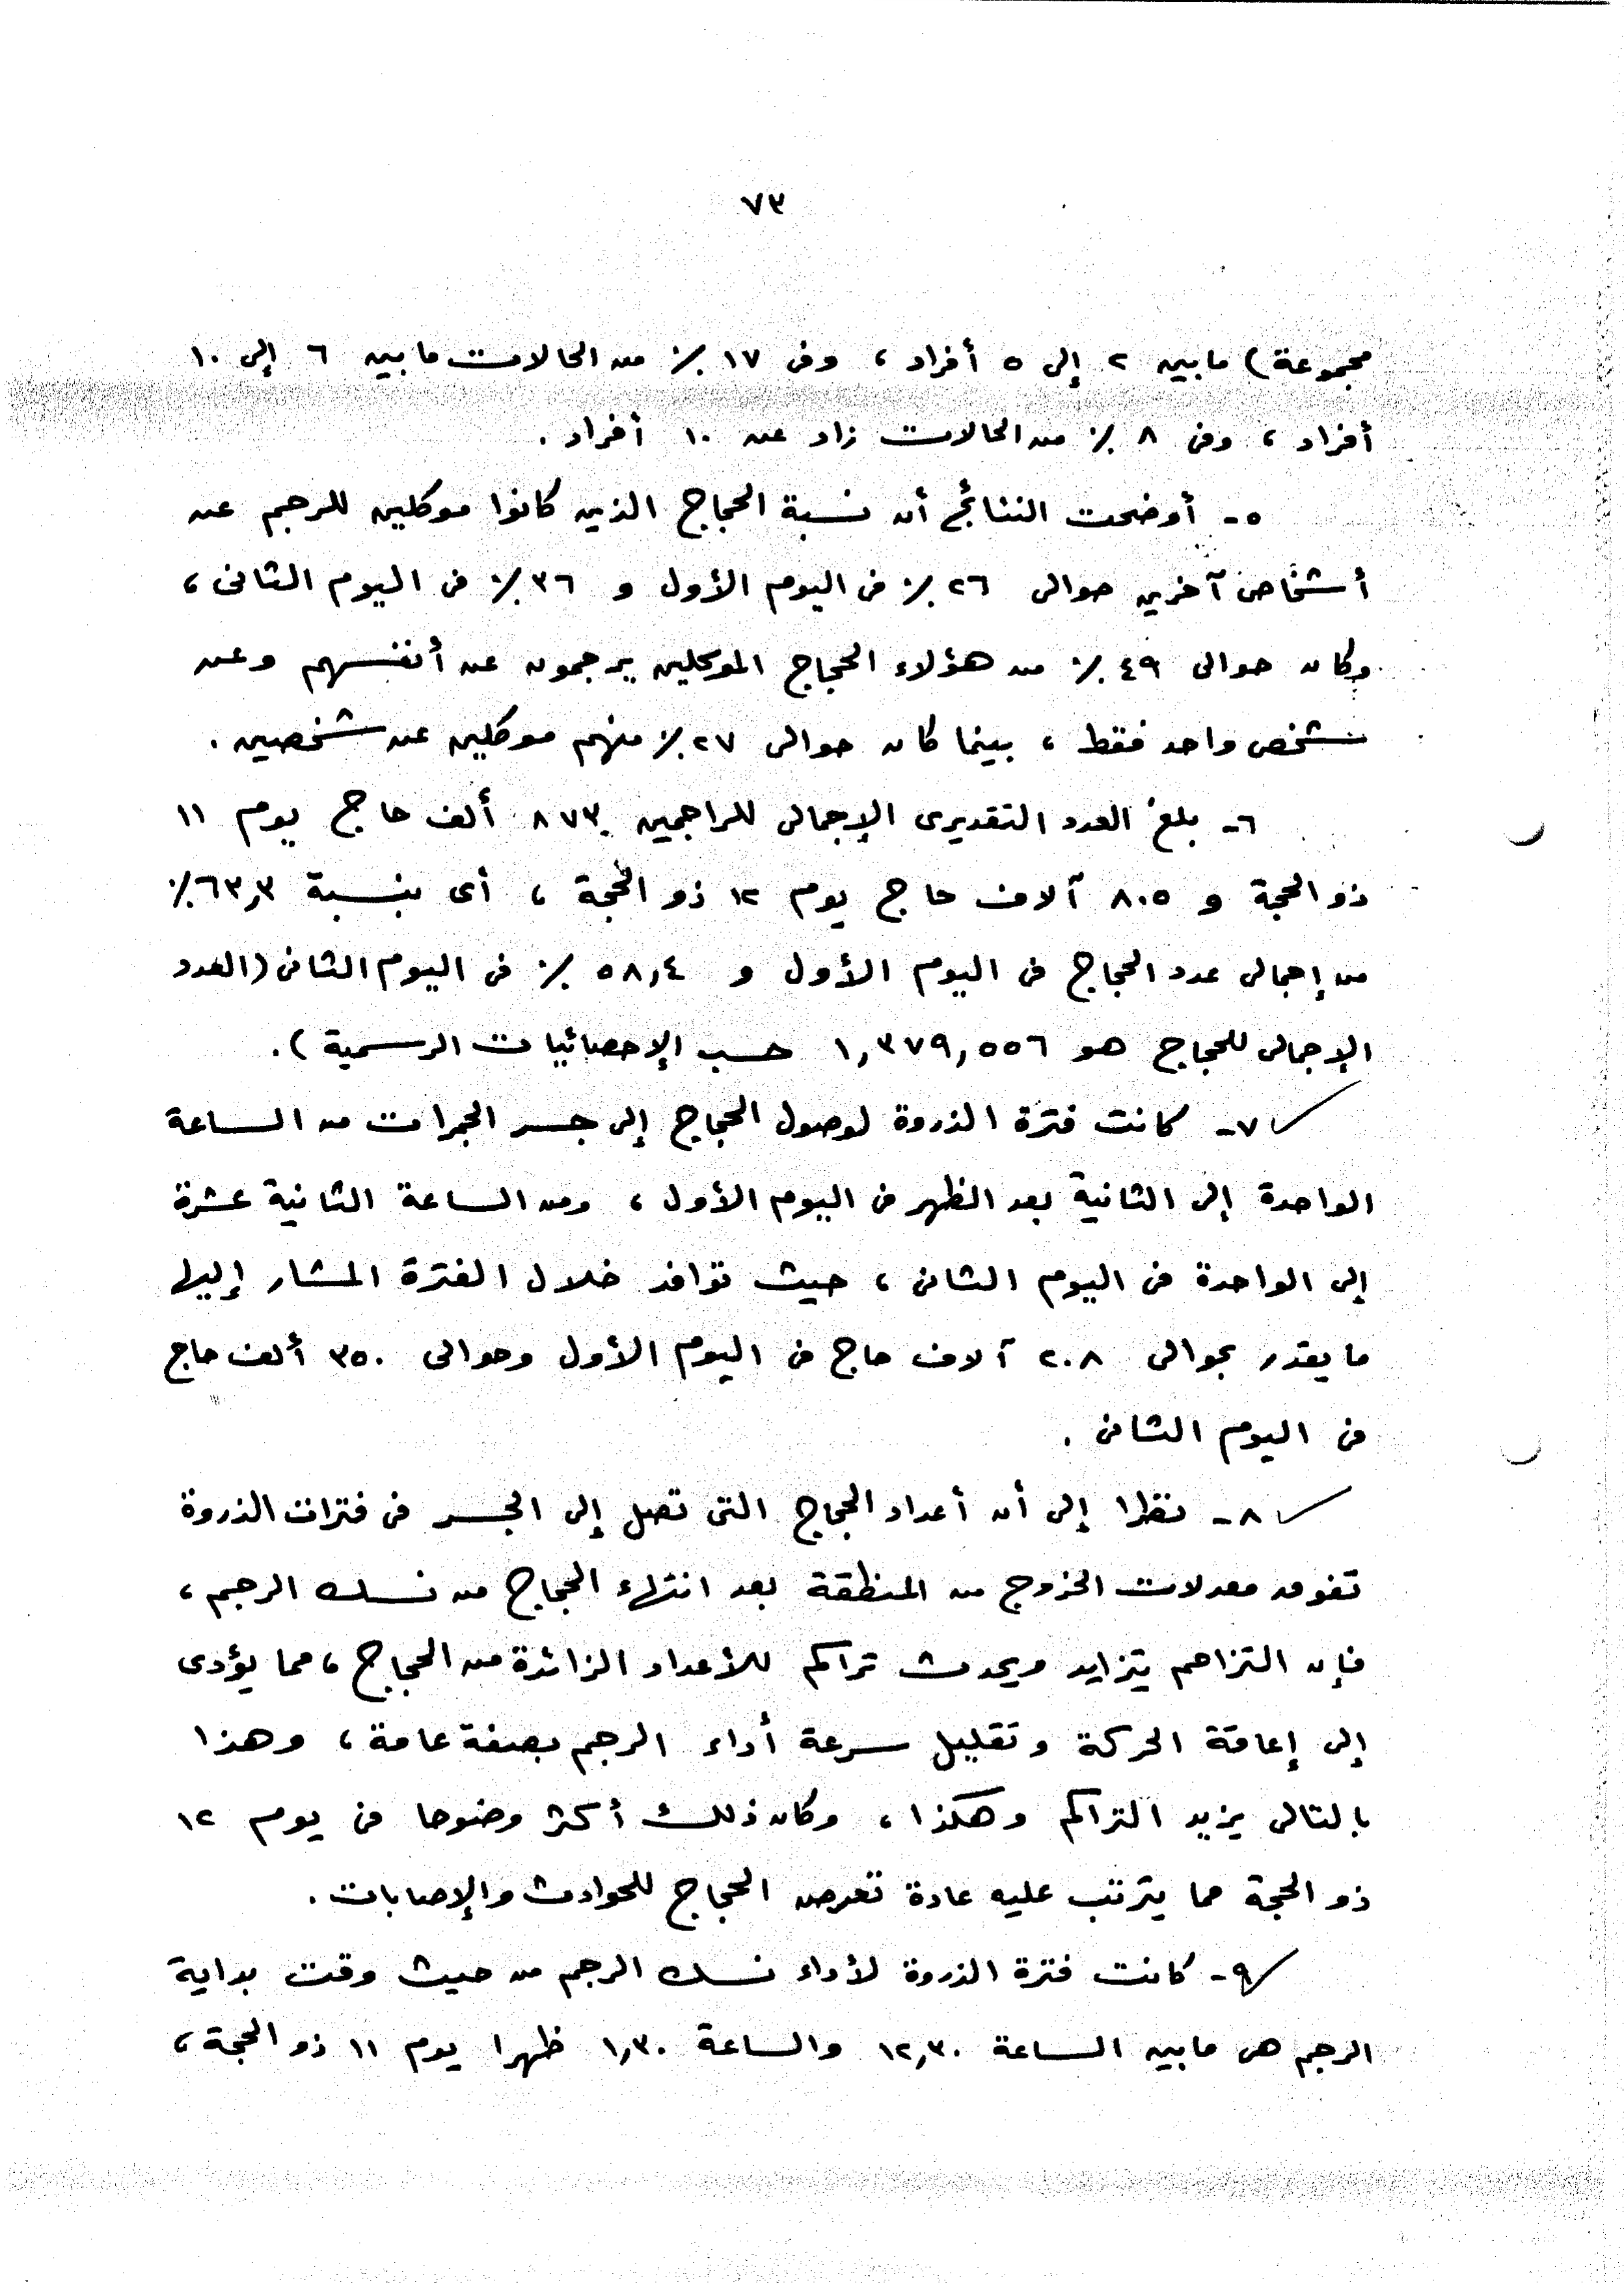 ٧٣
مجموعة) ما بين ٢ إلى ٥ أفراد ، وفى ١٧ ٪ من الحالات ما بين ٦ إلى ١٠
أفراد ، وفى ٨ ٪ من الحالات زاد عن ١٠ أفراد .
٥ـ أوضحت النتائج أن نسبة الحجاج الذين كانوا موكلين للرجم عن
أشخاص آخرين حوالى ٢٦ ٪ فى اليوم الأول و ٣٦ ٪ فى اليوم الثانى ،
وكان حوالى ٤٩ ٪ من هؤلاء الحجاج الموكلين يرجمون عن أنفسهم وعن
شخص واحد فقط ، بينما كان حوالى ٢٧ ٪ منهم موكلين عن شخصين .
٦ـ بلغ العدد التقديرى الإجمالى للراجمين ٨٧٣ ألف حاج يوم ١١
ذو الحجة و ٨٠٥ آلاف حاج يوم ١٢ ذو الحجة ، أى بنسبة ٦٣,٣ ٪
من إجمالى عدد الحجاج فى اليوم الأول و ٥٨,٤ ٪ فى اليوم الثانى (العدد
الإجمالى للحجاج هو ١,٣٧٩,٥٥٦ حسب الإحصائيات الرسمية ) .
٧ـ كانت فترة الذروة لوصول الحجاج إلى جسر الجمرات من الساعة
الواحدة إلى الثانية بعد الظهر فى اليوم الأول ، ومن الساعة الثانية عشرة
إلى الواحدة فى اليوم الثانى ، حيث توافد خلال الفترة المشار إليها
ما يقدر بحوالى ٢٠٨ آلاف حاج فى اليوم الأول وحوالى ٣٥٠ ألف حاج
فى اليوم الثانى .
٨ـ نظرا إلى أن أعداد الحجاج التى تصل إلى الجسر فى فترات الذروة
تفوق معدلات الخروج من المنطقة بعد انتهاء الحجاج من نسك الرجم ،
فإن التزاحم يتزايد ويحدث تراكم للأعداد الزائدة من الحجاج ، مما يؤدى
إلى إعاقة الحركة وتقليل سرعة أداء الرجم بصفة عامة ، وهذا
بالتالى يزيد التراكم وهكذا ، وكان ذلك أكثر وضوحا فى يوم ١٢
ذو الحجة مما يترتب عليه عادة تعرض الحجاج للحوادث والإصابات .
٩ـ كانت فترة الذروة لأداء نسك الرجم من حيث وقت بداية
الرجم هى ما بين الساعة ١٢,٣٠ والساعة ١,٣٠ ظهرا يوم ١١ ذو الحجة ،